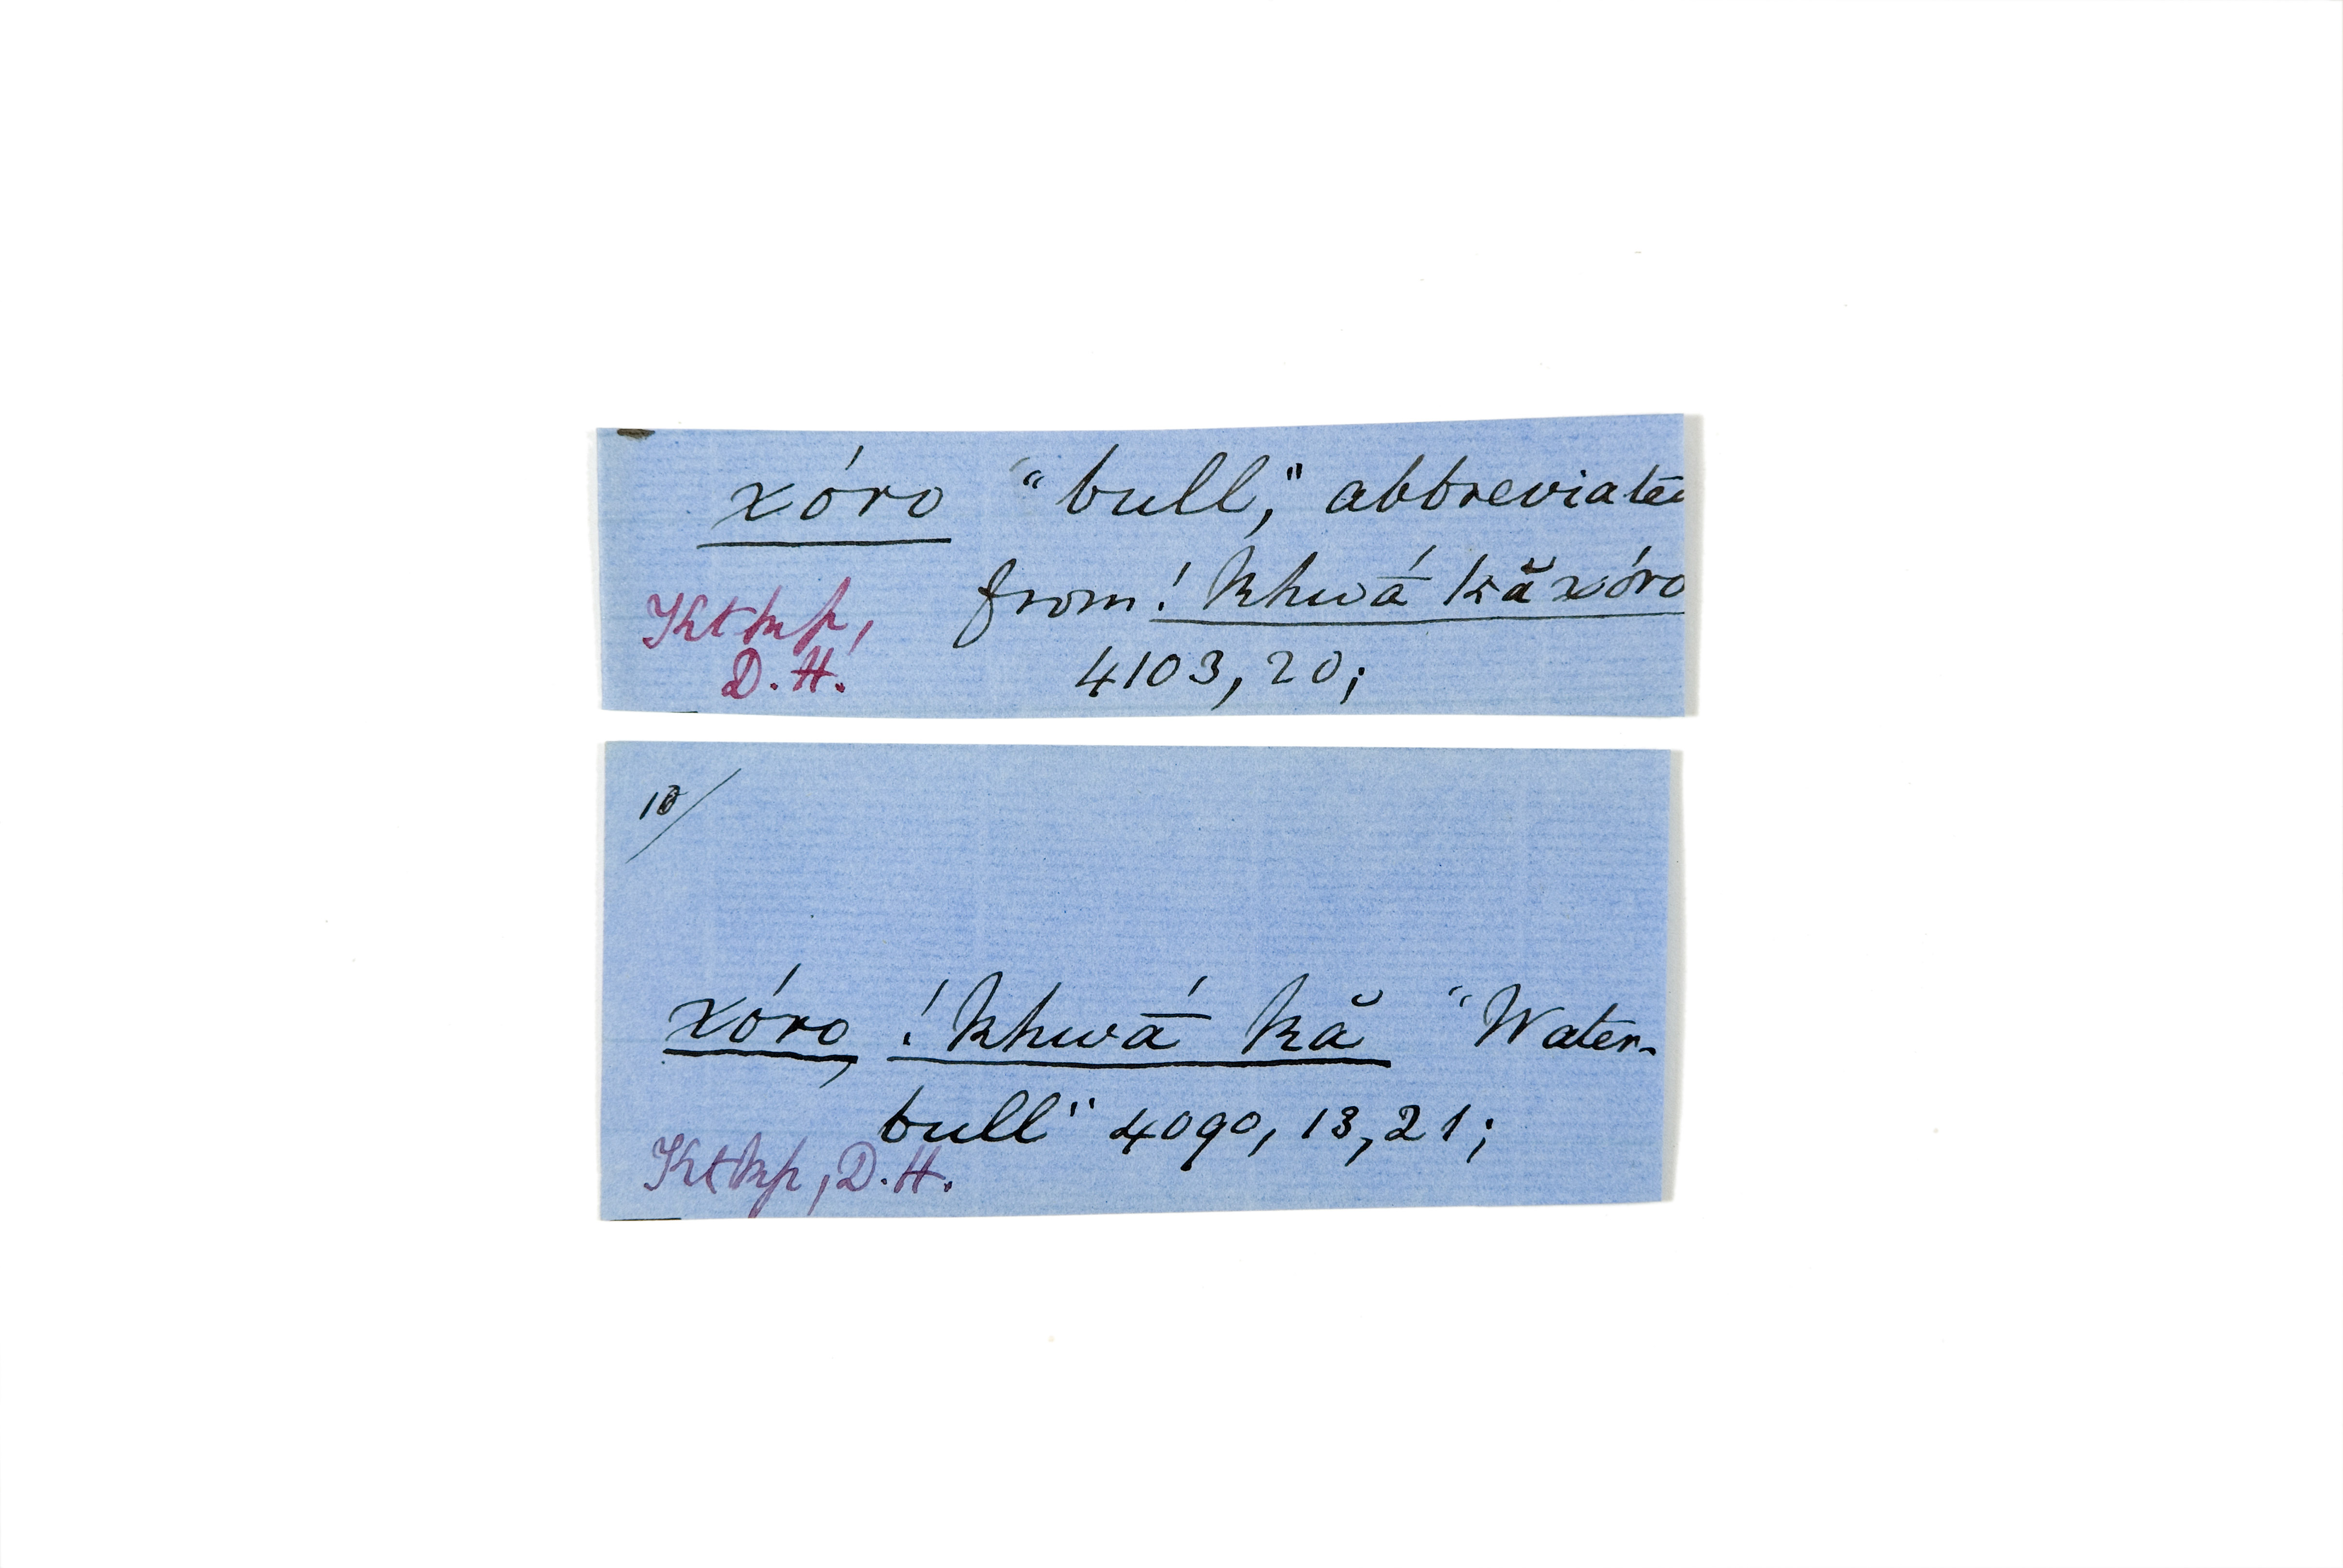 xóro "bull," abbreviated
from !khwā́ kă xóro
Ktkp,
D.H.
4103, 20;
10/
xóro, !khwā́ kă "Water-
bull" 4090, 13, 21;
Ktkp, D.H.